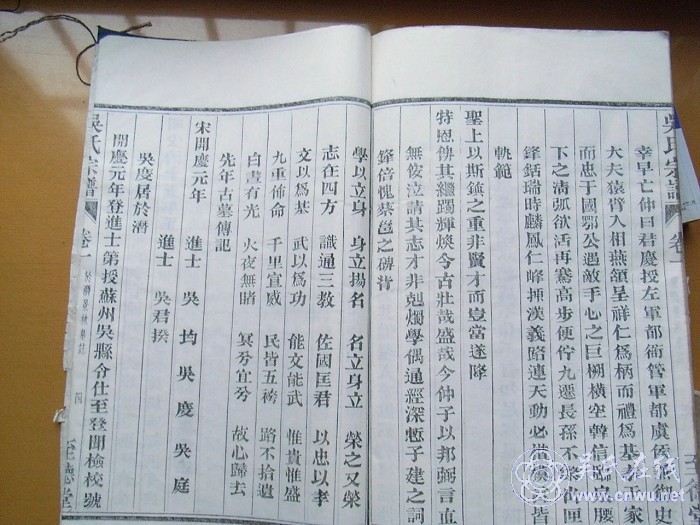 吳氏宗譜
卷
幸早亡仲曰君慶授左軍都衙管軍都虞侯無御史
大夫猿臂入相燕頷呈祥仁爲柄而禮爲基孝于家
而忠于國鄂公遇敵手心之巨栩橫空韓信臨官腰
下之淸弧欲活再騫高步便佇九遷長孫不
鋒銛瑞時麟鳳仁峰揰漢義路連天動必
軌範
聖上以斯鎮之重非賢才而豈當遂降
特恩俾其繼躅輝煥今古壯哉盛哉今仲子以邦弼言直
無俊泣請其志才非剋燭學偶通經深慙子建之詞
鋒倍愧蔡邕之碑背
學以立身 身立揚名 名立身立 榮之又榮
志在四方 識通三教 佐國匡君 以忠以孝
文以爲基 武以爲功 能文能武 惟貴惟盛
九重佈命 千里宣威 民皆五袴 路不拾遺
白晝有光 火夜無暗 冥兮宜兮 故心歸去
先年古墓傳記
宋開慶元年 進士 吳均 吳慶 吳庭
進士 吳君揆
吳慶居於潛
開慶元年登進士第授蘇州吳縣令仕至登聞檢校號
吳氏宗譜
卷一
四
至德堂
吳氏在线
www.cnwu.net